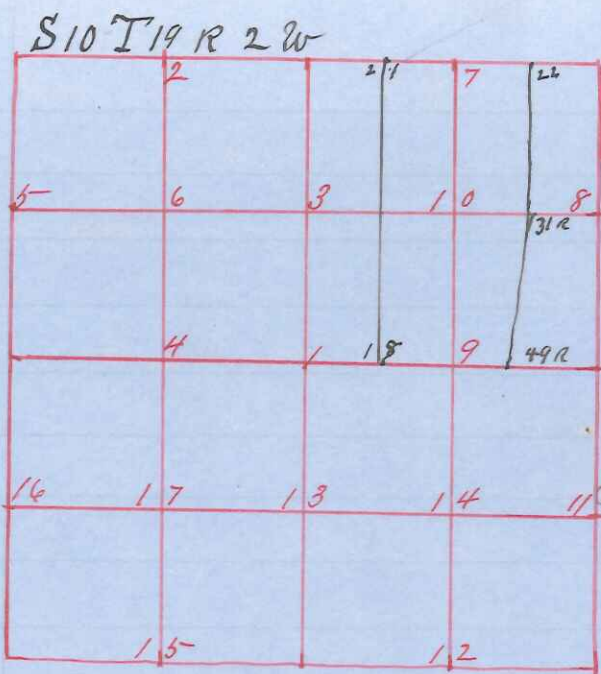 S10 T19 R 2 W
2 21 7 22
5 6 3 10 8
31 R
4 1 18 9 49 R
16 17 13 14 11
15 12